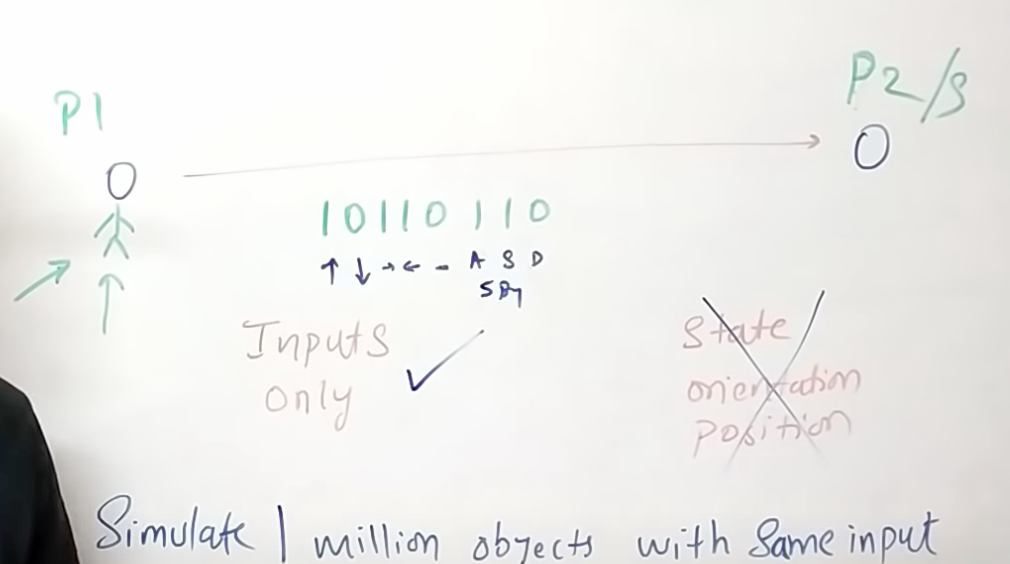 P1
P2/S
10110110
↑ ↓ → ← - A S D
Inputs
only
State
orientation
position
Simulate 1 million objects with Same input